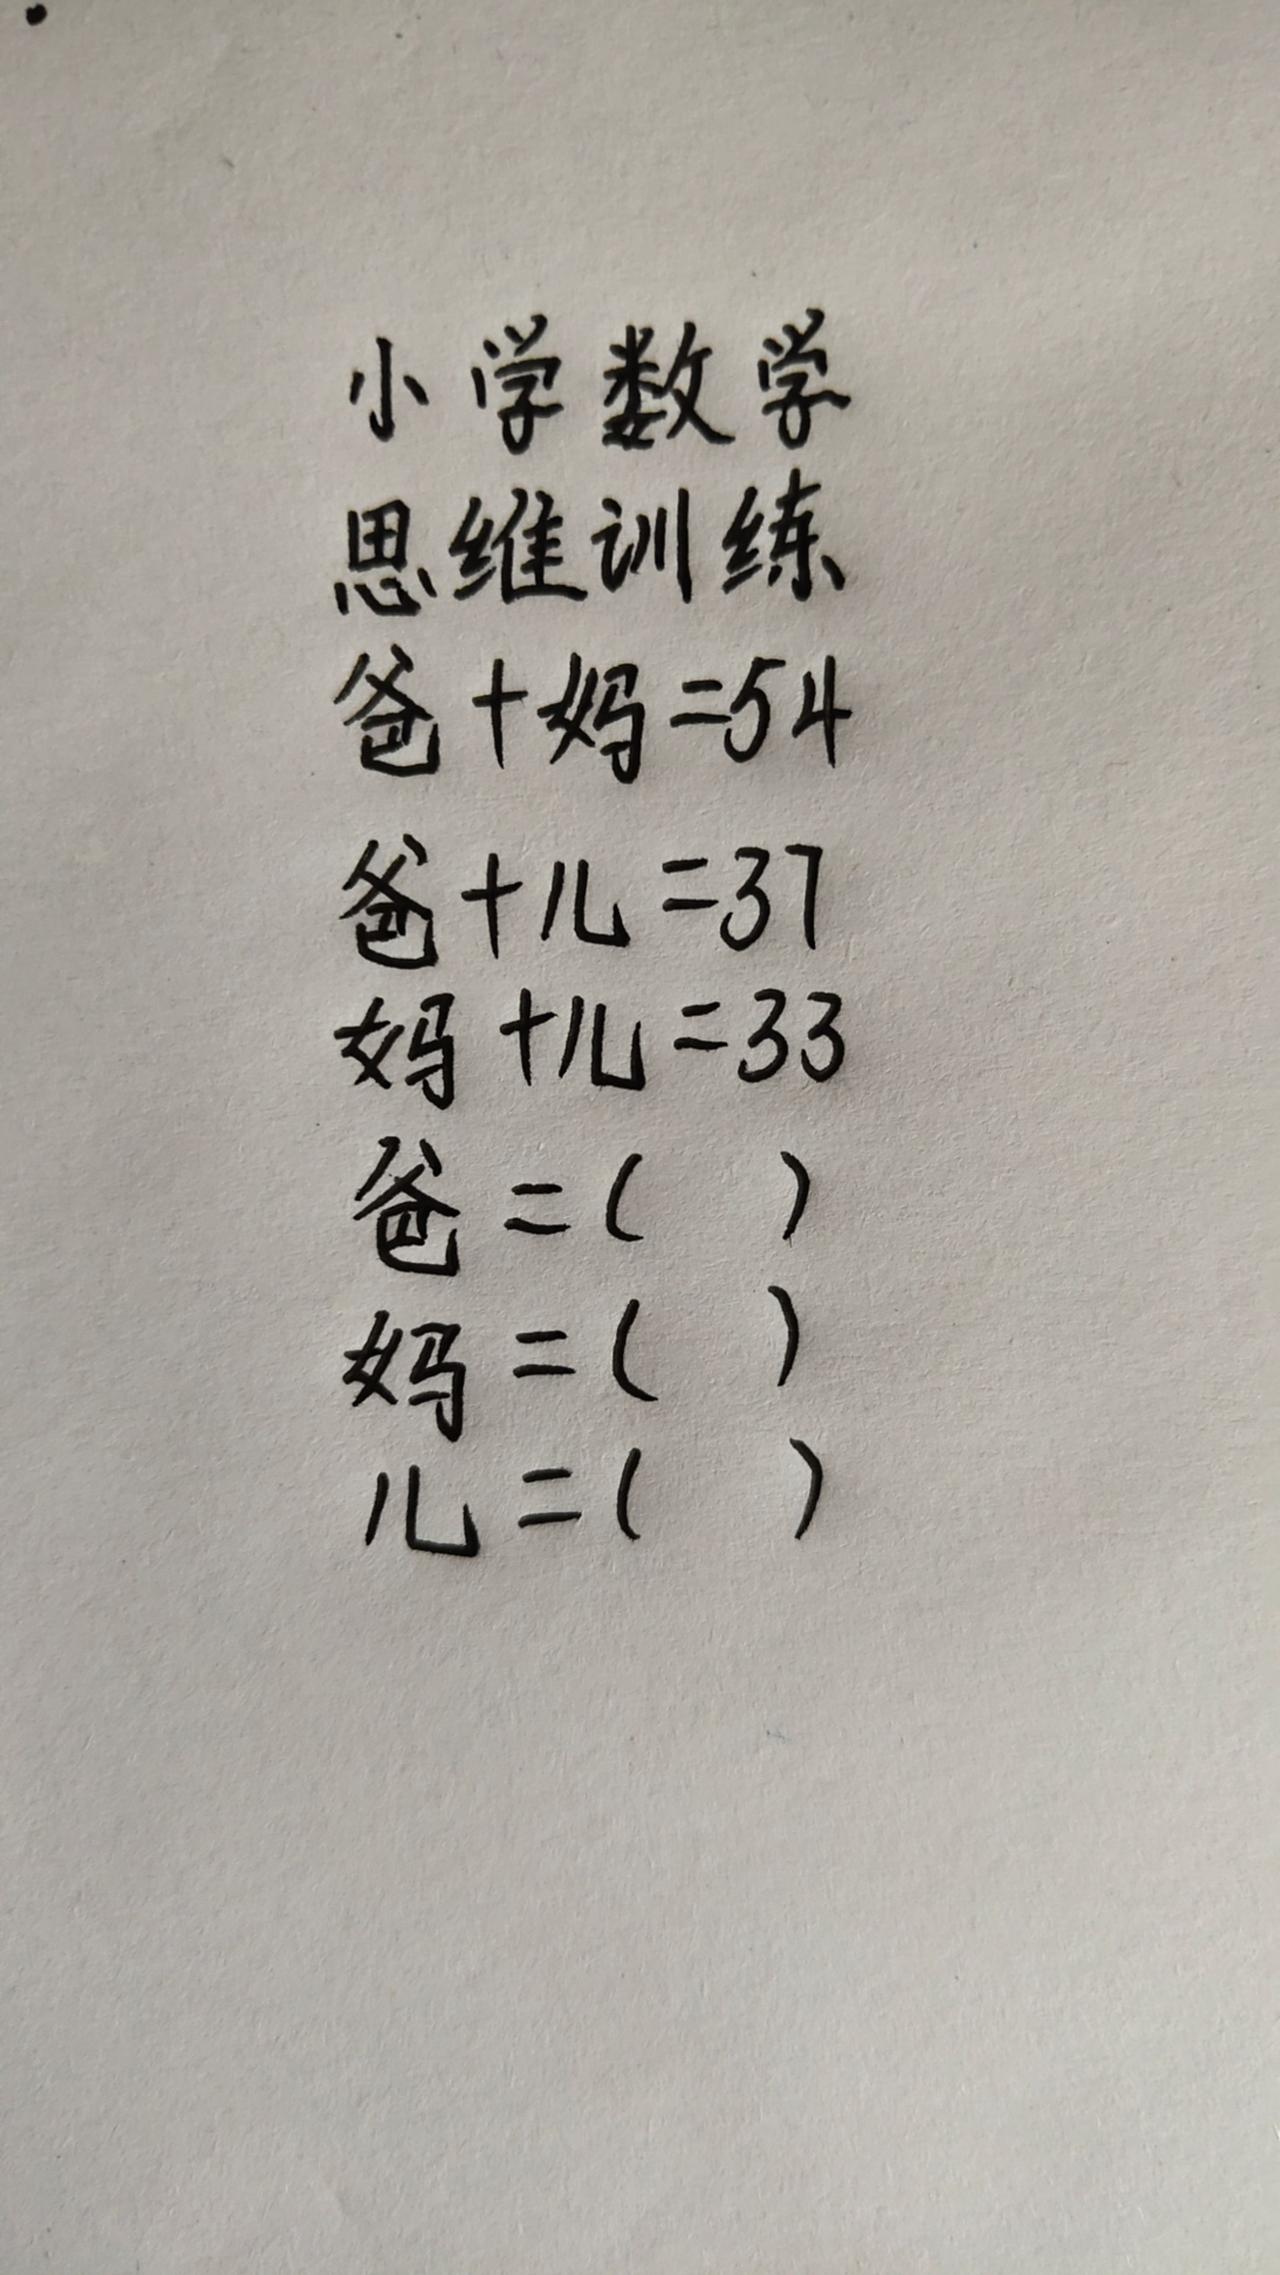 小学数学
思维训练
爸+妈=54
爸+儿=37
妈+儿=33
爸=( )
妈=( )
儿=( )